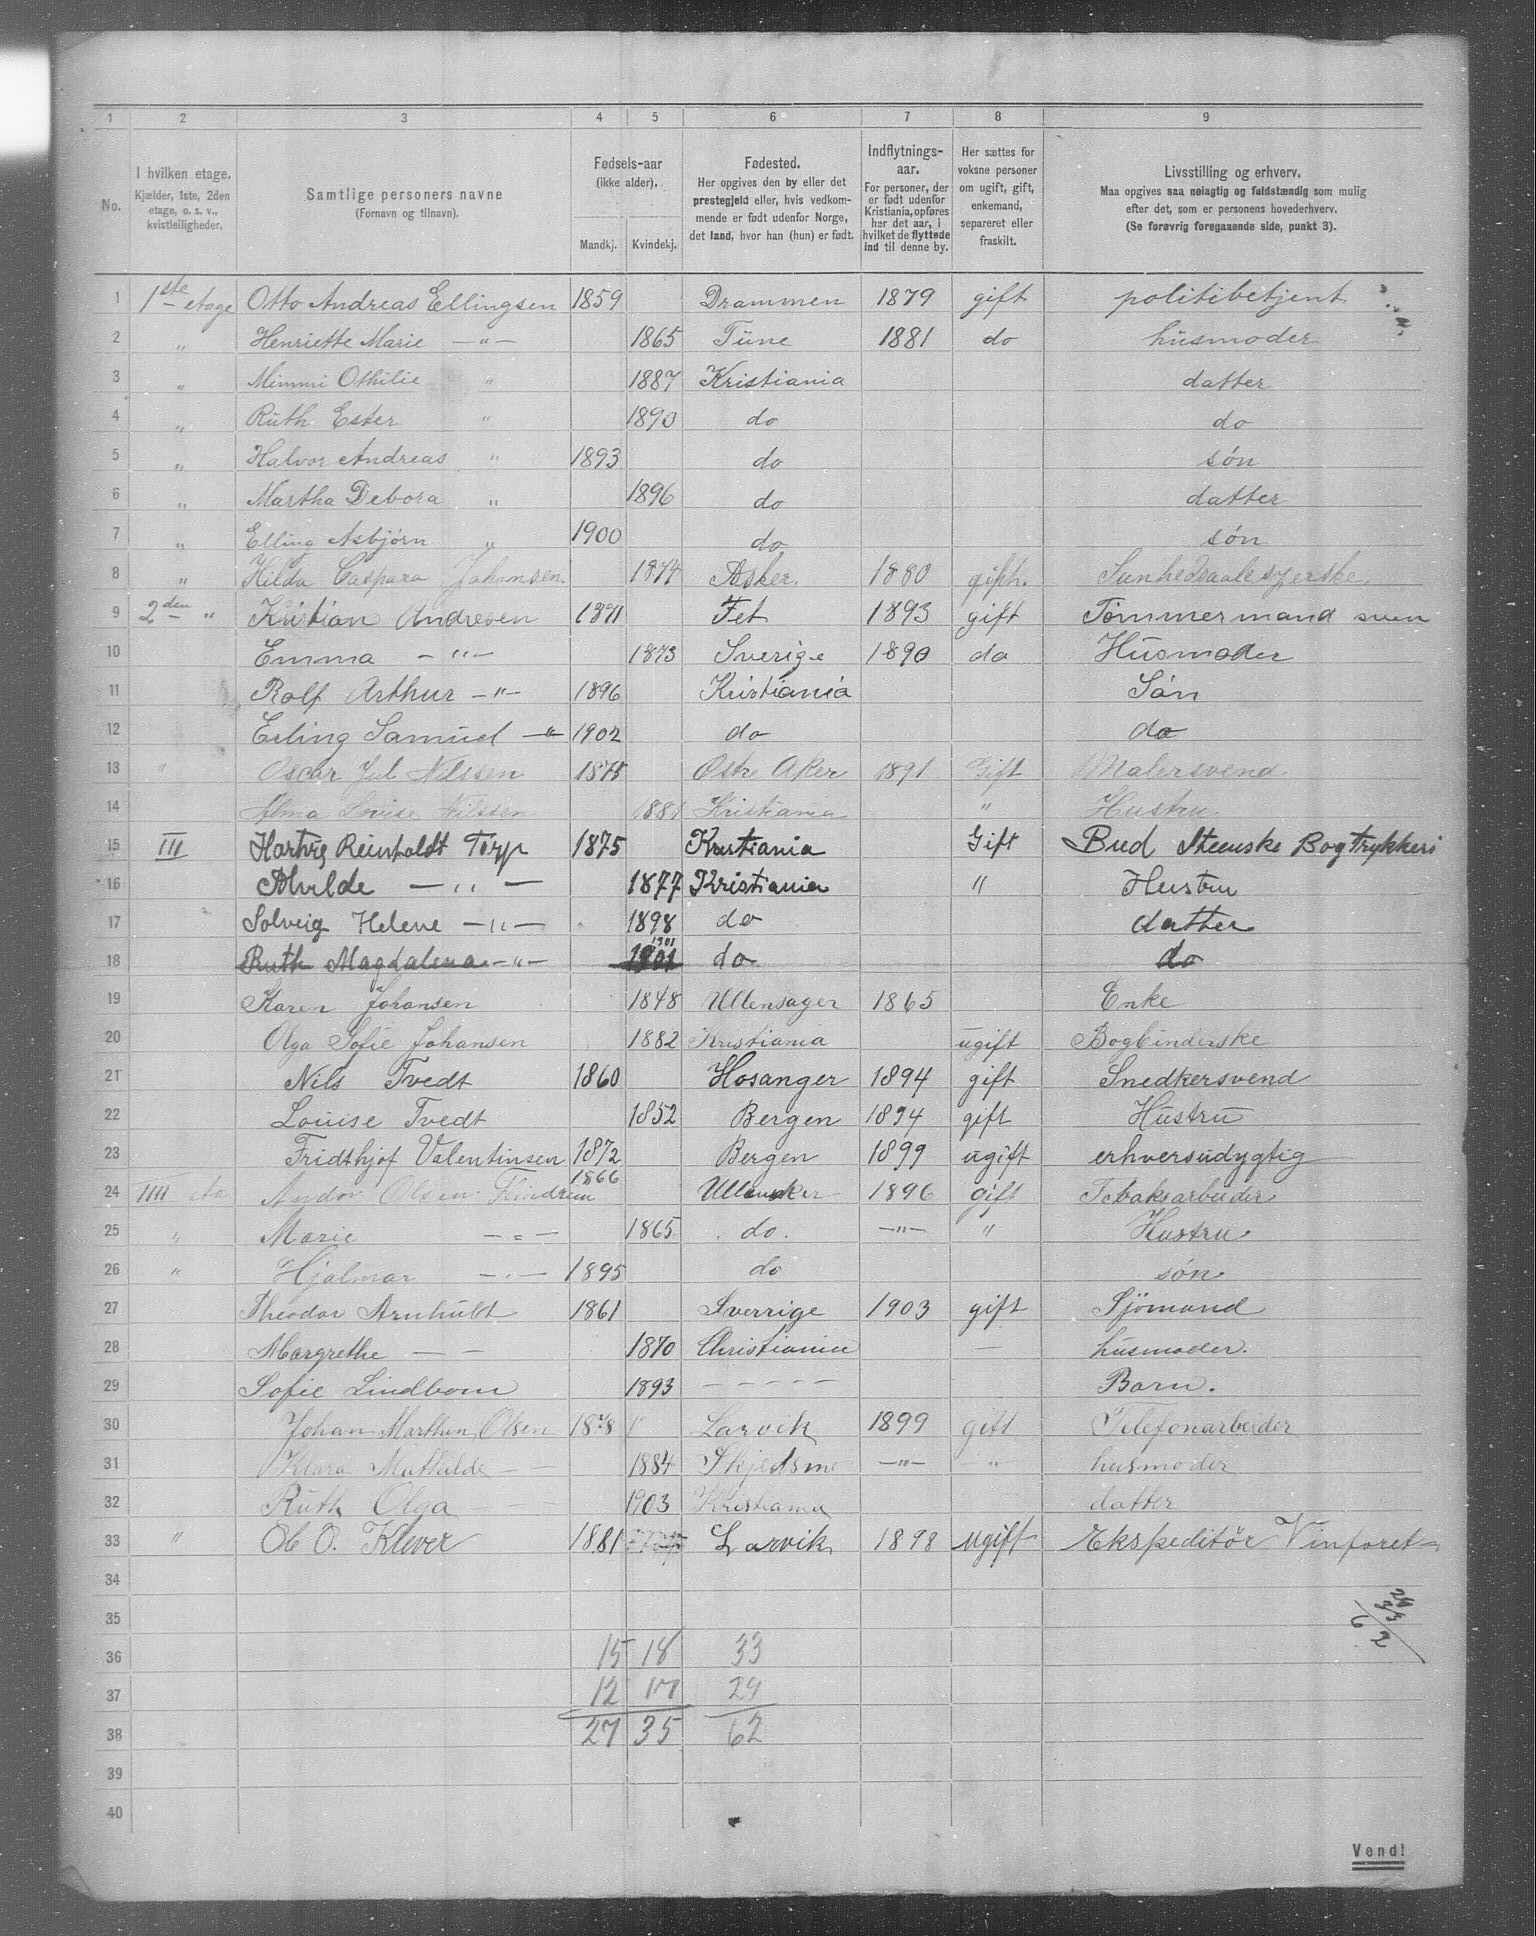 1 2 3 4 5 6 7 8 9
No. I hvilken etage. Kjælder, 1ste, 2den etage, o. s. v., kvistleiligheder. Samtlige personers navne (Fornavn og tilnavn). Fødsels-aar (ikke alder). Mandkj. Kvindekj. Fødested. Her opgives den by eller det prestegjeld eller, hvis vedkommende er født udenfor Norge, det land, hvor han (hun) er født. Indflytnings-aar. For personer, der er født udenfor Kristiania, opføres her det aar, i hvilket de flyttede ind til denne by. Her sættes for voksne personer om ugift, gift, enkemand, separeret eller fraskilt. Livsstilling og erhverv. Maa opgives saa nøiagtig og fuldstændig som mulig efter det, som er personens hovederhverv. (Se forøvrig foregaaende side, punkt 3).
1 1ste etage Otto Andreas Ellingsen 1859 Drammen 1879 gift politibetjent
2 " Henriette Marie —"— 1865 Tune 1881 do husmoder
3 " Mimmi Othilie " 1887 Kristiania datter
4 " Ruth Ester " 1890 do do
5 " Halvor Andreas " 1893 do søn
6 " Martha Debora " 1896 do datter
7 " Elling Asbjørn " 1900 do søn
8 " Hilda Caspara Johansen 1874 Asker. 1880
9 2den " Kristian Andresen 1871 Fet 1893 gift Tømmermand sven
10 Emma —"— 1873 Sverige 1890 do Husmoder
11 Rolf Arthur —"— 1896 Kristiania Søn
12 Erling Samuel —"— 1902 do do
13 " Oscar Jul Nilssen 1875 Østre Aker 1891 Gift Malersvend
14 Alma Lovise Nilssen 1881 Kristiania " Hustru
15 III Hartvig Reinholdt Torp 1875 Kristiania Gift Bud Steenske Bogtrykkeri
16 Alvilde —"— 1877 Kristiania " Hustru
17 Solveig Helene —"— 1898 do datter
18 Ruth Magdalena —"— 1901 1901 do do
19 Karen Johansen 1848 Ullensager 1865 Enke
20 Olga Sofie Johansen 1882 Kristiania ugift Bogbinderske
21 Nils Tvedt 1860 Hosanger 1894 gift Snedkersvend
22 Louise Tvedt 1852 Bergen 1894 gift Hustru
23 Fridthjof Valentinsen 1872 Bergen 1899 ugift erhversudygtig
24 IIII do Andor Olsen 1866 1896 gift Tobaksarbeider
25 " Marie —"— 1865 do. —"— " Hustru
26 " Hjalmar —"— 1895 do søn
27 Theodor Arnhuldt 1861 Sverrige 1903 gift Sjömand
28 Margrethe — — 1870 Christiania — husmoder.
29 Sofie Lindbom 1893 — — — — — Barn.
30 Johan Marthin Olsen 1878 Larvik 1899 gift Telefonarbeider
31 Klara Mathilde — — 1884 Skjedsmo —"— " husmoder
32 Ruth Olga — — — 1903 Kristiania datter
33 " Ole O. Klever 1881 Larvik 1898 ugift Ekspeditör Vinforet-
34
35
36 15 18 33
37 12 17 29
38 27 35 62
39
40
Vend!